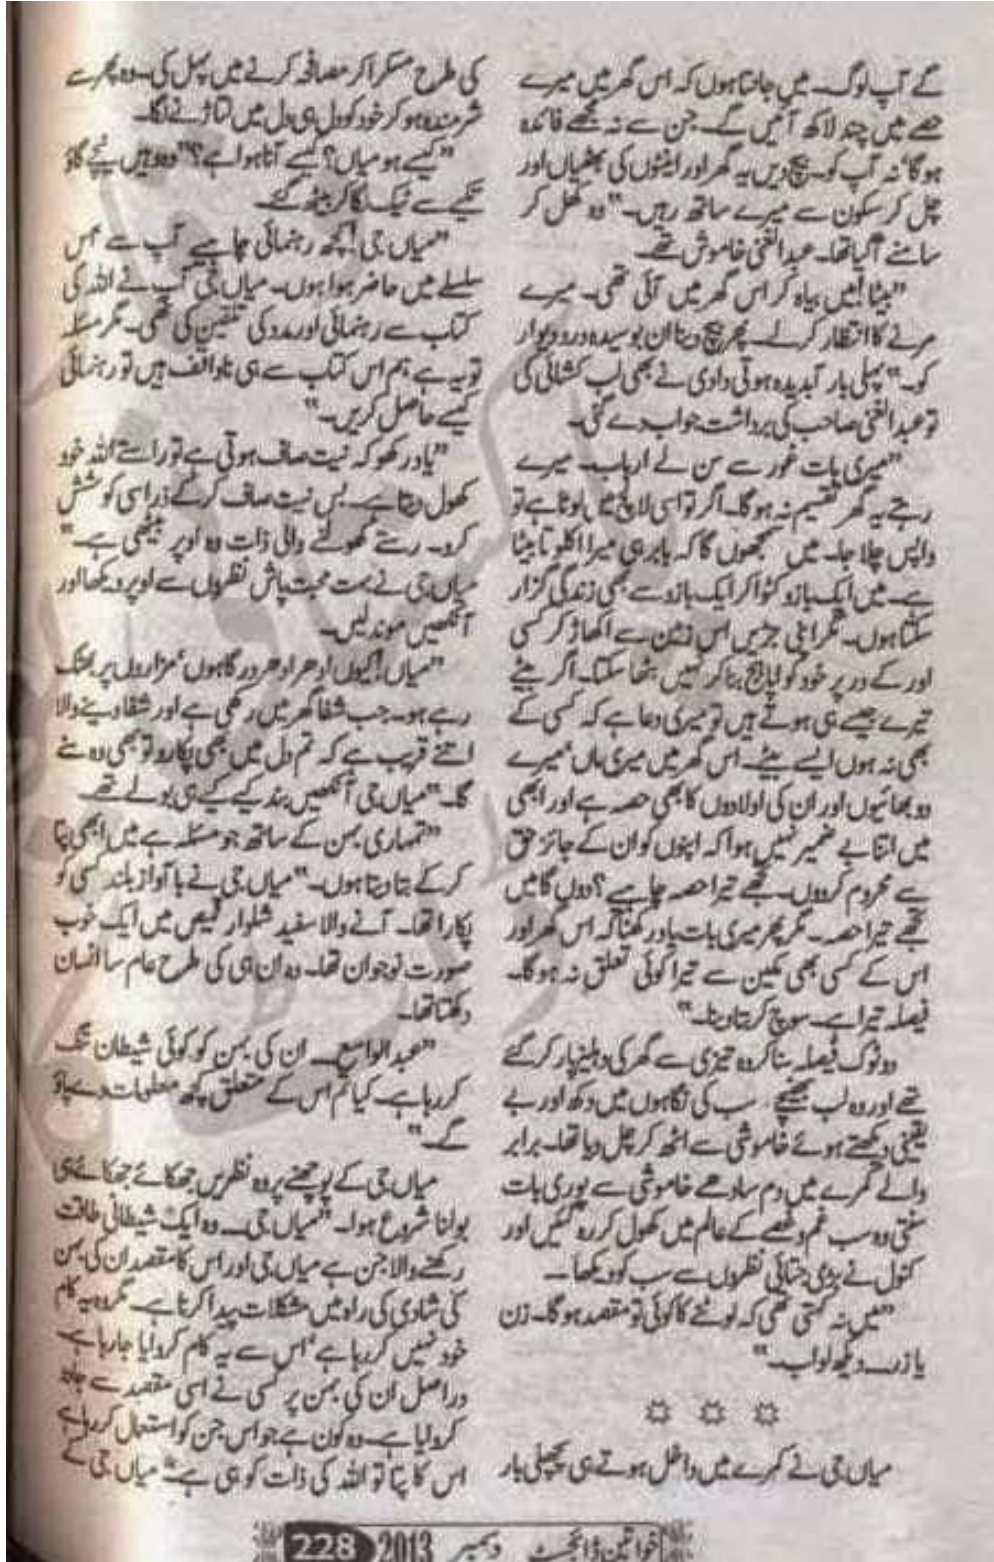 گے آپ لوگ۔ میں جانتا ہوں کہ اس گھر میں میرے
حصے میں چند لاکھ آئیں گے۔ جن سے نہ مجھے فائدہ
ہوگا نہ آپ کو۔ بیچ دیں یہ گھر اور اینٹوں کی بھٹیاں اور
چل کر سکون سے میرے ساتھ رہیں۔" وہ کھل کر
سامنے آگیا تھا۔ عبدالغنی خاموش تھے۔
"بیٹا! میں بیاہ کر اس گھر میں آئی تھی۔ میرے
مرنے کا انتظار کرلے۔ پھر بیچ دینا ان بوسیدہ در و دیوار
کو۔" پہلی بار آبدیدہ ہوتی دادی نے بھی لب کشائی کی
تو عبدالغنی صاحب کی برداشت جواب دے گئی۔
"میری بات غور سے سن لے ارباب۔ میرے
رہتے یہ گھر تقسیم نہ ہوگا۔ اگر تو اسی لالچ میں لوٹا ہے تو
واپس چلا جا۔ میں سمجھوں گا کہ بابر ہی میرا اکلوتا بیٹا
ہے۔ میں ایک بازو کٹوا کر ایک بازو سے بھی زندگی گزار
سکتا ہوں۔ مگر اپنی جڑیں اس زمین سے اکھاڑ کر کسی
اور کے در پر خود کو اپاہج بنا کر نہیں بٹھا سکتا۔ اگر بیٹے
تیرے جیسے ہی ہوتے ہیں تو میری دعا ہے کہ کسی کے
بھی نہ ہوں ایسے بیٹے۔ اس گھر میں میری ماں، میرے
دو بھائیوں اور ان کی اولادوں کا بھی حصہ ہے اور ابھی
میں اتنا بے ضمیر نہیں ہوا کہ اپنوں کو ان کے جائز حق
سے محروم کردوں۔ تجھے تیرا حصہ چاہیے؟ دوں گا میں
تجھے تیرا حصہ۔ مگر پھر میری بات یاد رکھنا کہ اس گھر اور
اس کے کسی بھی مکین سے تیرا کوئی تعلق نہ ہوگا۔
فیصلہ تیرا ہے۔ سوچ کر بتا دینا۔"
دو ٹوک فیصلہ سنا کر وہ تیزی سے گھر کی دہلیز پار کر گئے
تھے اور وہ لب بھینچے، سب کی نگاہوں میں دکھ اور بے
یقینی دیکھتے ہوئے خاموشی سے اٹھ کر چل دیا تھا۔ برابر
والے کمرے میں دم سادھے خاموشی سے پوری بات
سنتی وہ سب غم و غصے کے عالم میں کھول کر رہ گئیں اور
کنول نے بڑی جتاتی نظروں سے سب کو دیکھا۔
"میں نہ کہتی تھی کہ لوٹنے کا کوئی تو مقصد ہوگا۔ زن
یا زر۔ دیکھ لو اب۔"
☼ ☼ ☼
میاں جی نے کمرے میں داخل ہوتے ہی پچھلی بار
کی طرح مسکرا کر مصافحہ کرنے میں پہل کی۔ وہ پھر سے
شرمندہ ہو کر خود کو دل ہی دل میں لتاڑنے لگا۔
"کیسے ہو میاں؟ کیسے آنا ہوا ہے؟" وہ وہیں نیچے گاؤ
تکیے سے ٹیک لگا کر بیٹھ گئے۔
"میاں جی! کچھ رہنمائی چاہیے آپ سے اس
سلسلے میں حاضر ہوا ہوں۔ میاں جی آپ نے اللہ کی
کتاب سے رہنمائی اور مدد کی تلقین کی تھی۔ مگر مسئلہ
تو یہ ہے ہم اس کتاب سے ہی ناواقف ہیں تو رہنمائی
کیسے حاصل کریں۔"
"یاد رکھو کہ نیت صاف ہوتی ہے تو راستے اللہ خود
کھول دیتا ہے۔ بس نیت صاف کرکے ذرا سی کوشش
کرو۔ رستے کھولنے والی ذات وہ اوپر بیٹھی ہے۔"
میاں جی نے بہت محبت پاش نظروں سے اوپر دیکھا اور
آنکھیں موند لیں۔
"میاں! کیوں ادھر ادھر درگاہوں، مزاروں پر بھٹک
رہے ہو۔ جب شفا گھر میں رکھی ہے اور شفا دینے والا
اتنے قریب ہے کہ تم دل میں بھی پکارو تو بھی وہ سنے
گا۔" میاں جی آنکھیں بند کیے کیے ہی بولے تھے۔
"تمہاری بہن کے ساتھ جو مسئلہ ہے میں ابھی پتا
کرکے بتا دیتا ہوں۔" میاں جی نے با آواز بلند کسی کو
پکارا تھا۔ آنے والا سفید شلوار قمیص میں ایک خوب
صورت نوجوان تھا۔ وہ ان ہی کی طرح عام سا انسان
دکھتا تھا۔
"عبدالواسع۔ ان کی بہن کو کوئی شیطان تنگ
کر رہا ہے۔ کیا تم اس کے متعلق کچھ معلومات دے پاؤ
گے۔"
میاں جی کے پوچھنے پر وہ نظریں جھکائے جھکائے ہی
بولنا شروع ہوا۔ "میاں جی۔ وہ ایک شیطانی طاقت
رکھنے والا جن ہے میاں جی اور اس کا مقصد ان کی بہن
کی شادی کی راہ میں مشکلات پیدا کرنا ہے۔ مگر وہ یہ کام
خود نہیں کر رہا ہے، اس سے یہ کام کروایا جا رہا ہے۔
دراصل ان کی بہن پر کسی نے اسی مقصد سے جادو
کروایا ہے۔ وہ کون ہے جو اس جن کو استعمال کر رہا ہے
اس کا پتا تو اللہ کی ذات کو ہی ہے۔" میاں جی کے
خواتین ڈائجسٹ دسمبر 2013 228